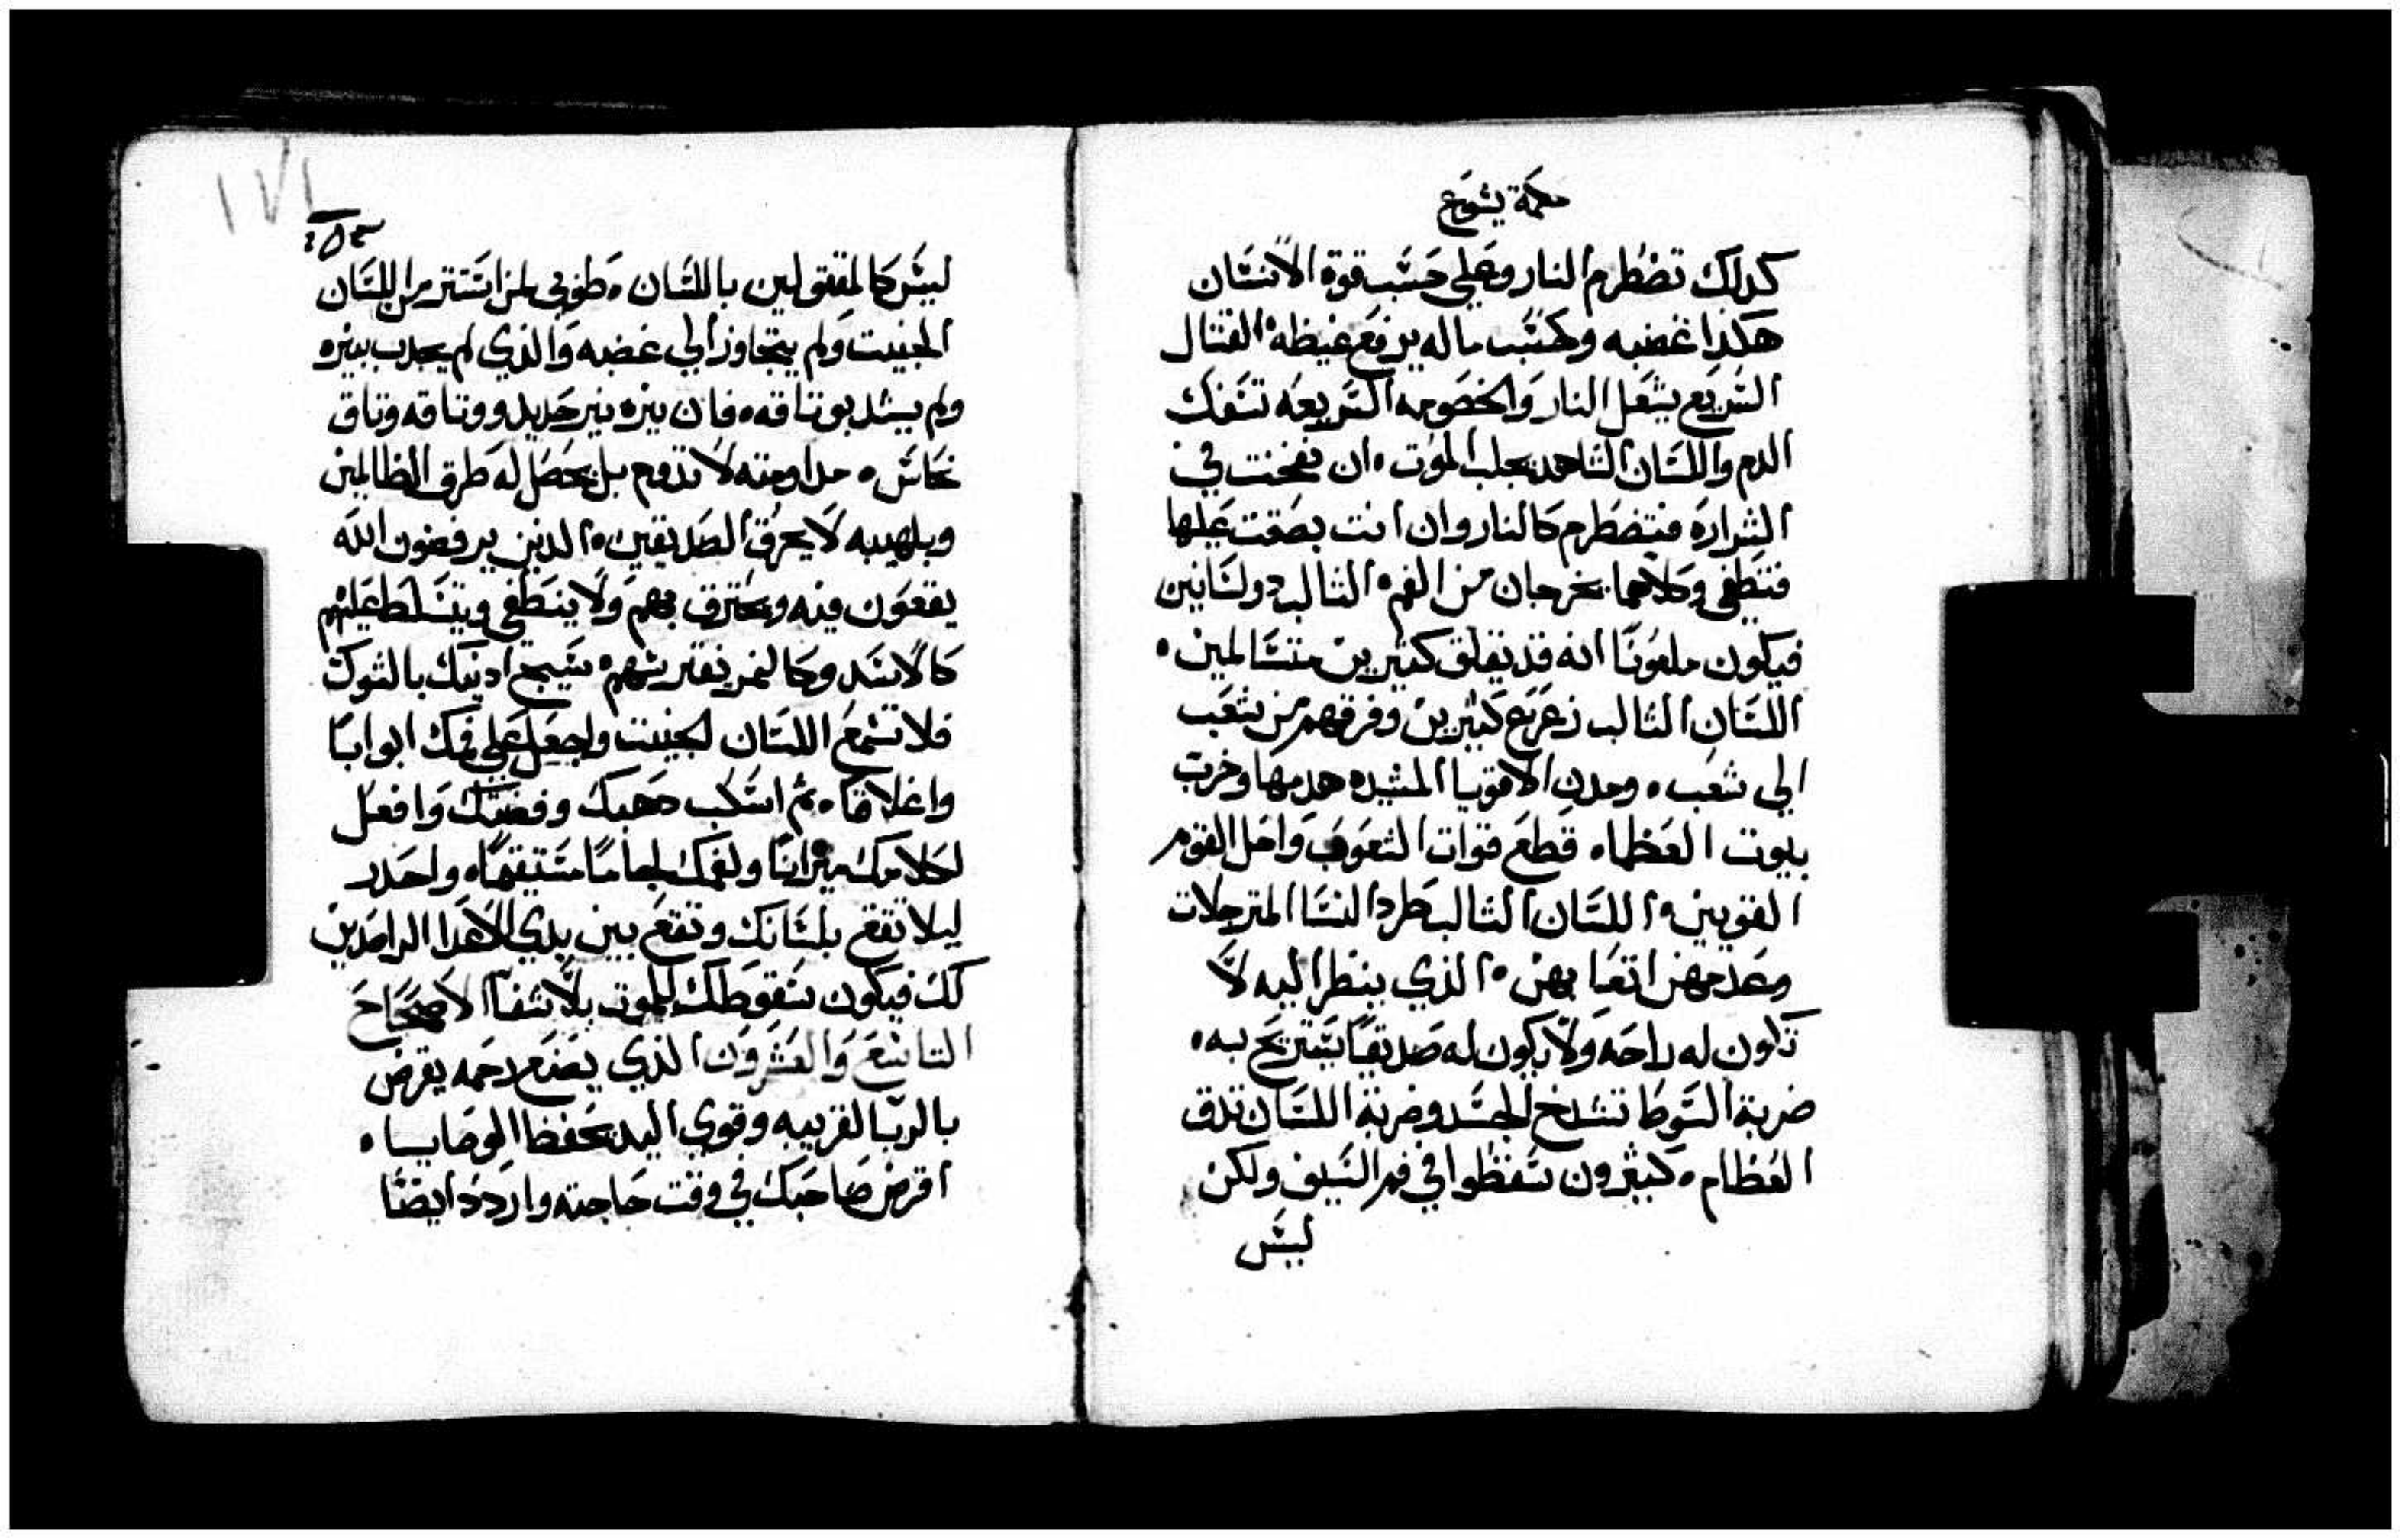 حكمة يشوع
كدلك تضطرم النار وعلي حسب قوة الانسان
هكذا غضبه وكحسب ماله يرفع غيظه ه القتال
السريع يشعل النار والخصومه السريعه تسفك
الدم واللسان الشاهد يجلب الموت ه ان نفخت في
الشراره فتضطرم كالنار وان انت بصقت عليها
فتطفي وكلاهما يخرجان من الفم ه الثالب دولسانين
فيكون ملعونا انه قد يقلق كثيرين متسالمين ه
اللسان الثالب زعزع كثيرين وفرقهم من شعب
الي شعب ه ومدن الاقويا المشيده هدمها وخرب
بيوت العظما ه قطع قوات الشعوب واحل القوم
القويين ه اللسان الثالب طرد النسا المترجلات
وعدمهن اتعابهن ه الذي ينظر اليه لا
تكون له راحه ولا يكون له صديقا يستريح به ه
ضربة السوط تشدخ الجسد وضربة اللسان تدق
العظام ه كثيرون سقطوا في فم السيف ولكن
ليس
١٧١
ليس كالمقتولين باللسان ه طوبي لمن استتر من اللسان
الخبيث ولم يتجاوز الي غضبه والذي لم يجدب بنيره
ولم يشد بوتاقه ه فان نيره نير حديد ووتاقه وتاق
نحاس ه مداومته لا تدوم بل يحصل له طرق الظالمين
وبلهيبه لا يحرق الصديقين ه الدين يرفضون الله
يقعون فيه ويحترق بهم ولا ينطفي ويتسلط عليهم
كالاسد وكالنمر يفترسهم ه سيج ادنيك بالشوك
فلا تسمع اللسان الخبيث واجعل علي فمك ابوابا
واغلاقا ه ثم اسكب دهبك وفضتك وافعل
لكلامك ميزانا ولفمك لجاما مستقيما ه واحدر
ليلا تقع بلسانك وتقع بين يدي الاعدا الراصدين
لك فيكون سقوطك للموت بلا شفا الاصحاح
التاسع والعشرون الذي يصنع رحمه يقرض
بالربا لقريبه وقوي اليد يحفظ الوصايا ه
اقرض صاحبك في وقت حاجته واردد ايضا